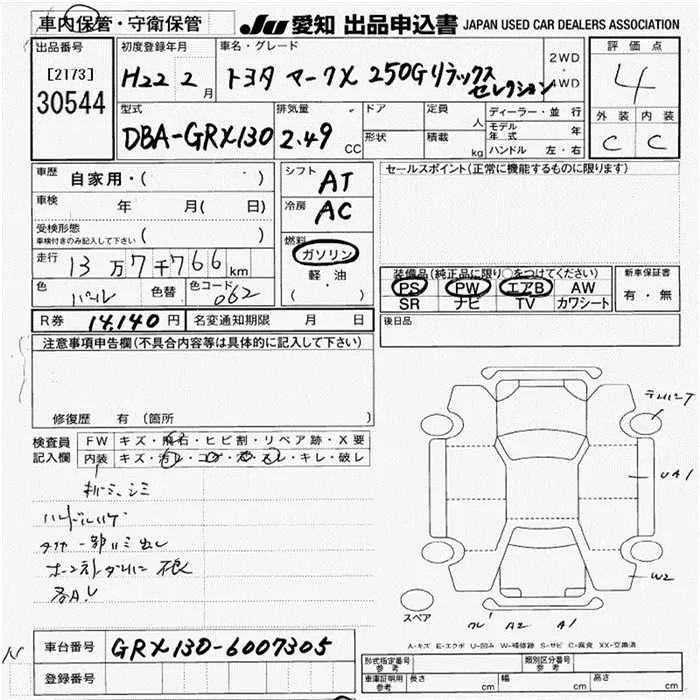 車内保管・守衛保管
JU 愛知 出品申込書 JAPAN USED CAR DEALERS ASSOCIATION
出品番号
[2173]
30544
初度登録年月
H22 2月
車名・グレード
トヨタ マークX 250G リラックス
セレクション
2WD
・
4WD
評価点
4
外装 内装
C C
型式
DBA-GRX130
排気量
2.49 CC
ドア
形状
定員 人
積載 kg
ディーラー・並行
モデル年式 年
ハンドル 左・右
車歴 自家用・( )
車検 年 月( 日)
受検形態
車検付きのみ記入して下さい ( )
走行 13万7千766km
色 パール 色替 色コード 062
シフト AT
冷房 AC
燃料
ガソリン
軽・油
( ・ )
セールスポイント(正常に機能するものに限ります)
装備品(純正品に限り○をつけてください)
PS PW エアB AW
SR ナビ TV カワシート
新車保証書
有・無
R券 14,140円 名変通知期限 月 日
後日品
注意事項申告欄(不具合内容等は具体的に記入して下さい)
修復歴 有(箇所 )
検査員
記入欄
FW キズ・飛石・ヒビ割・リペア跡・X要
内装 キズ・汚レ・コゲ・穴・スレ・キレ・破レ
テンパータ
UA1
W2
スペア
A2 A1
A-キズ E-エクボ U-凹み W-補修跡 S-サビ C-腐食 XX-交換済
車台番号 GRX130-6007305
登録番号
N
形式指定番号
参考
類別区分番号
参考
車庫証明用
参考
長さ cm 幅 cm 高さ cm